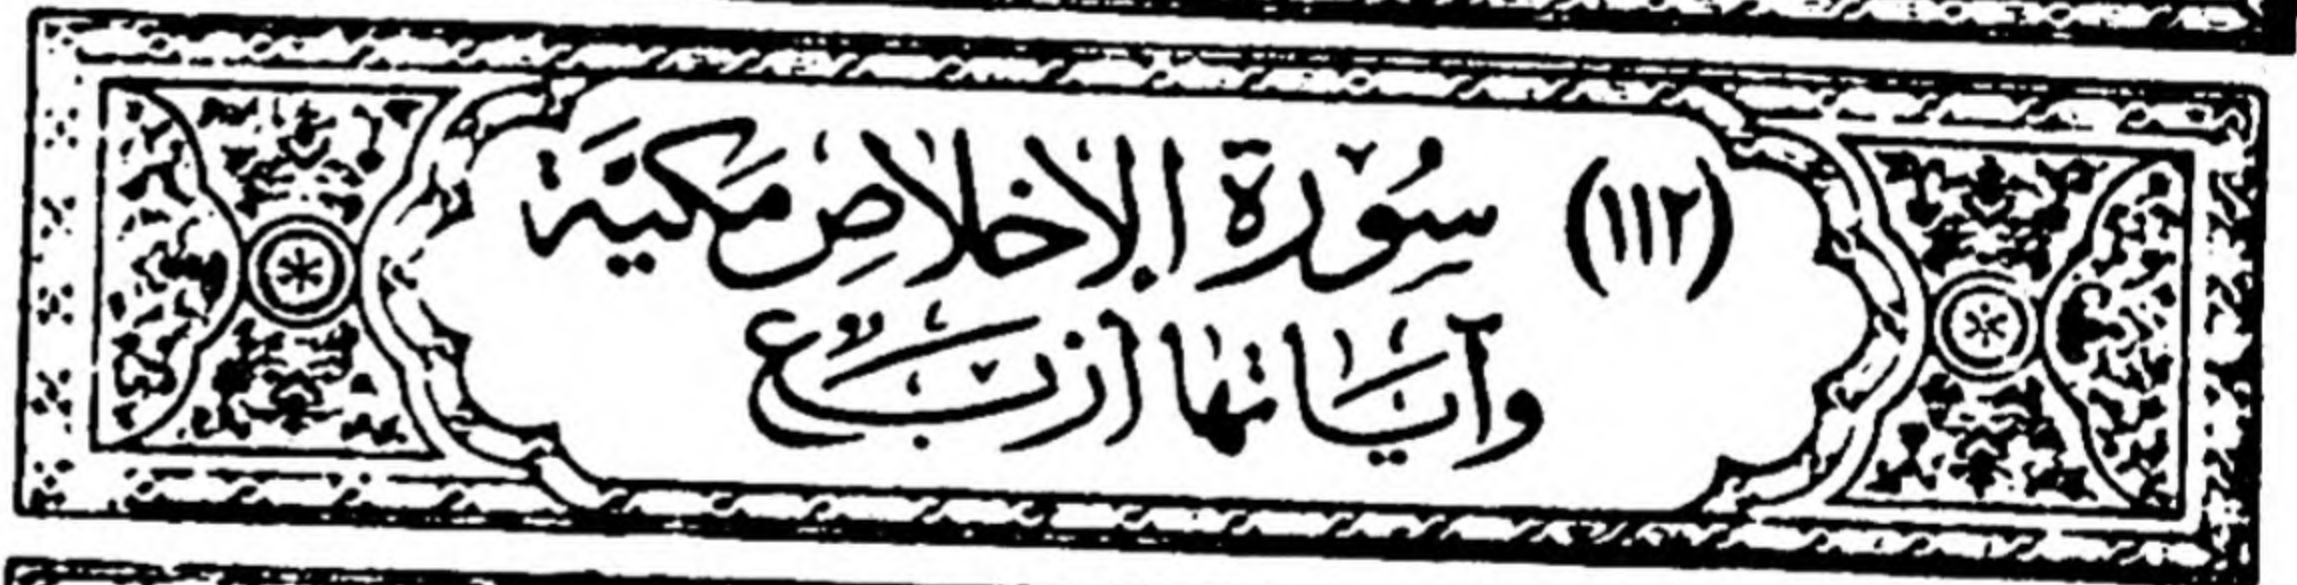 (١١٢) سُوْرَة الإخلاصِ مَكيَة
وآيَاتهَا أرْبَع